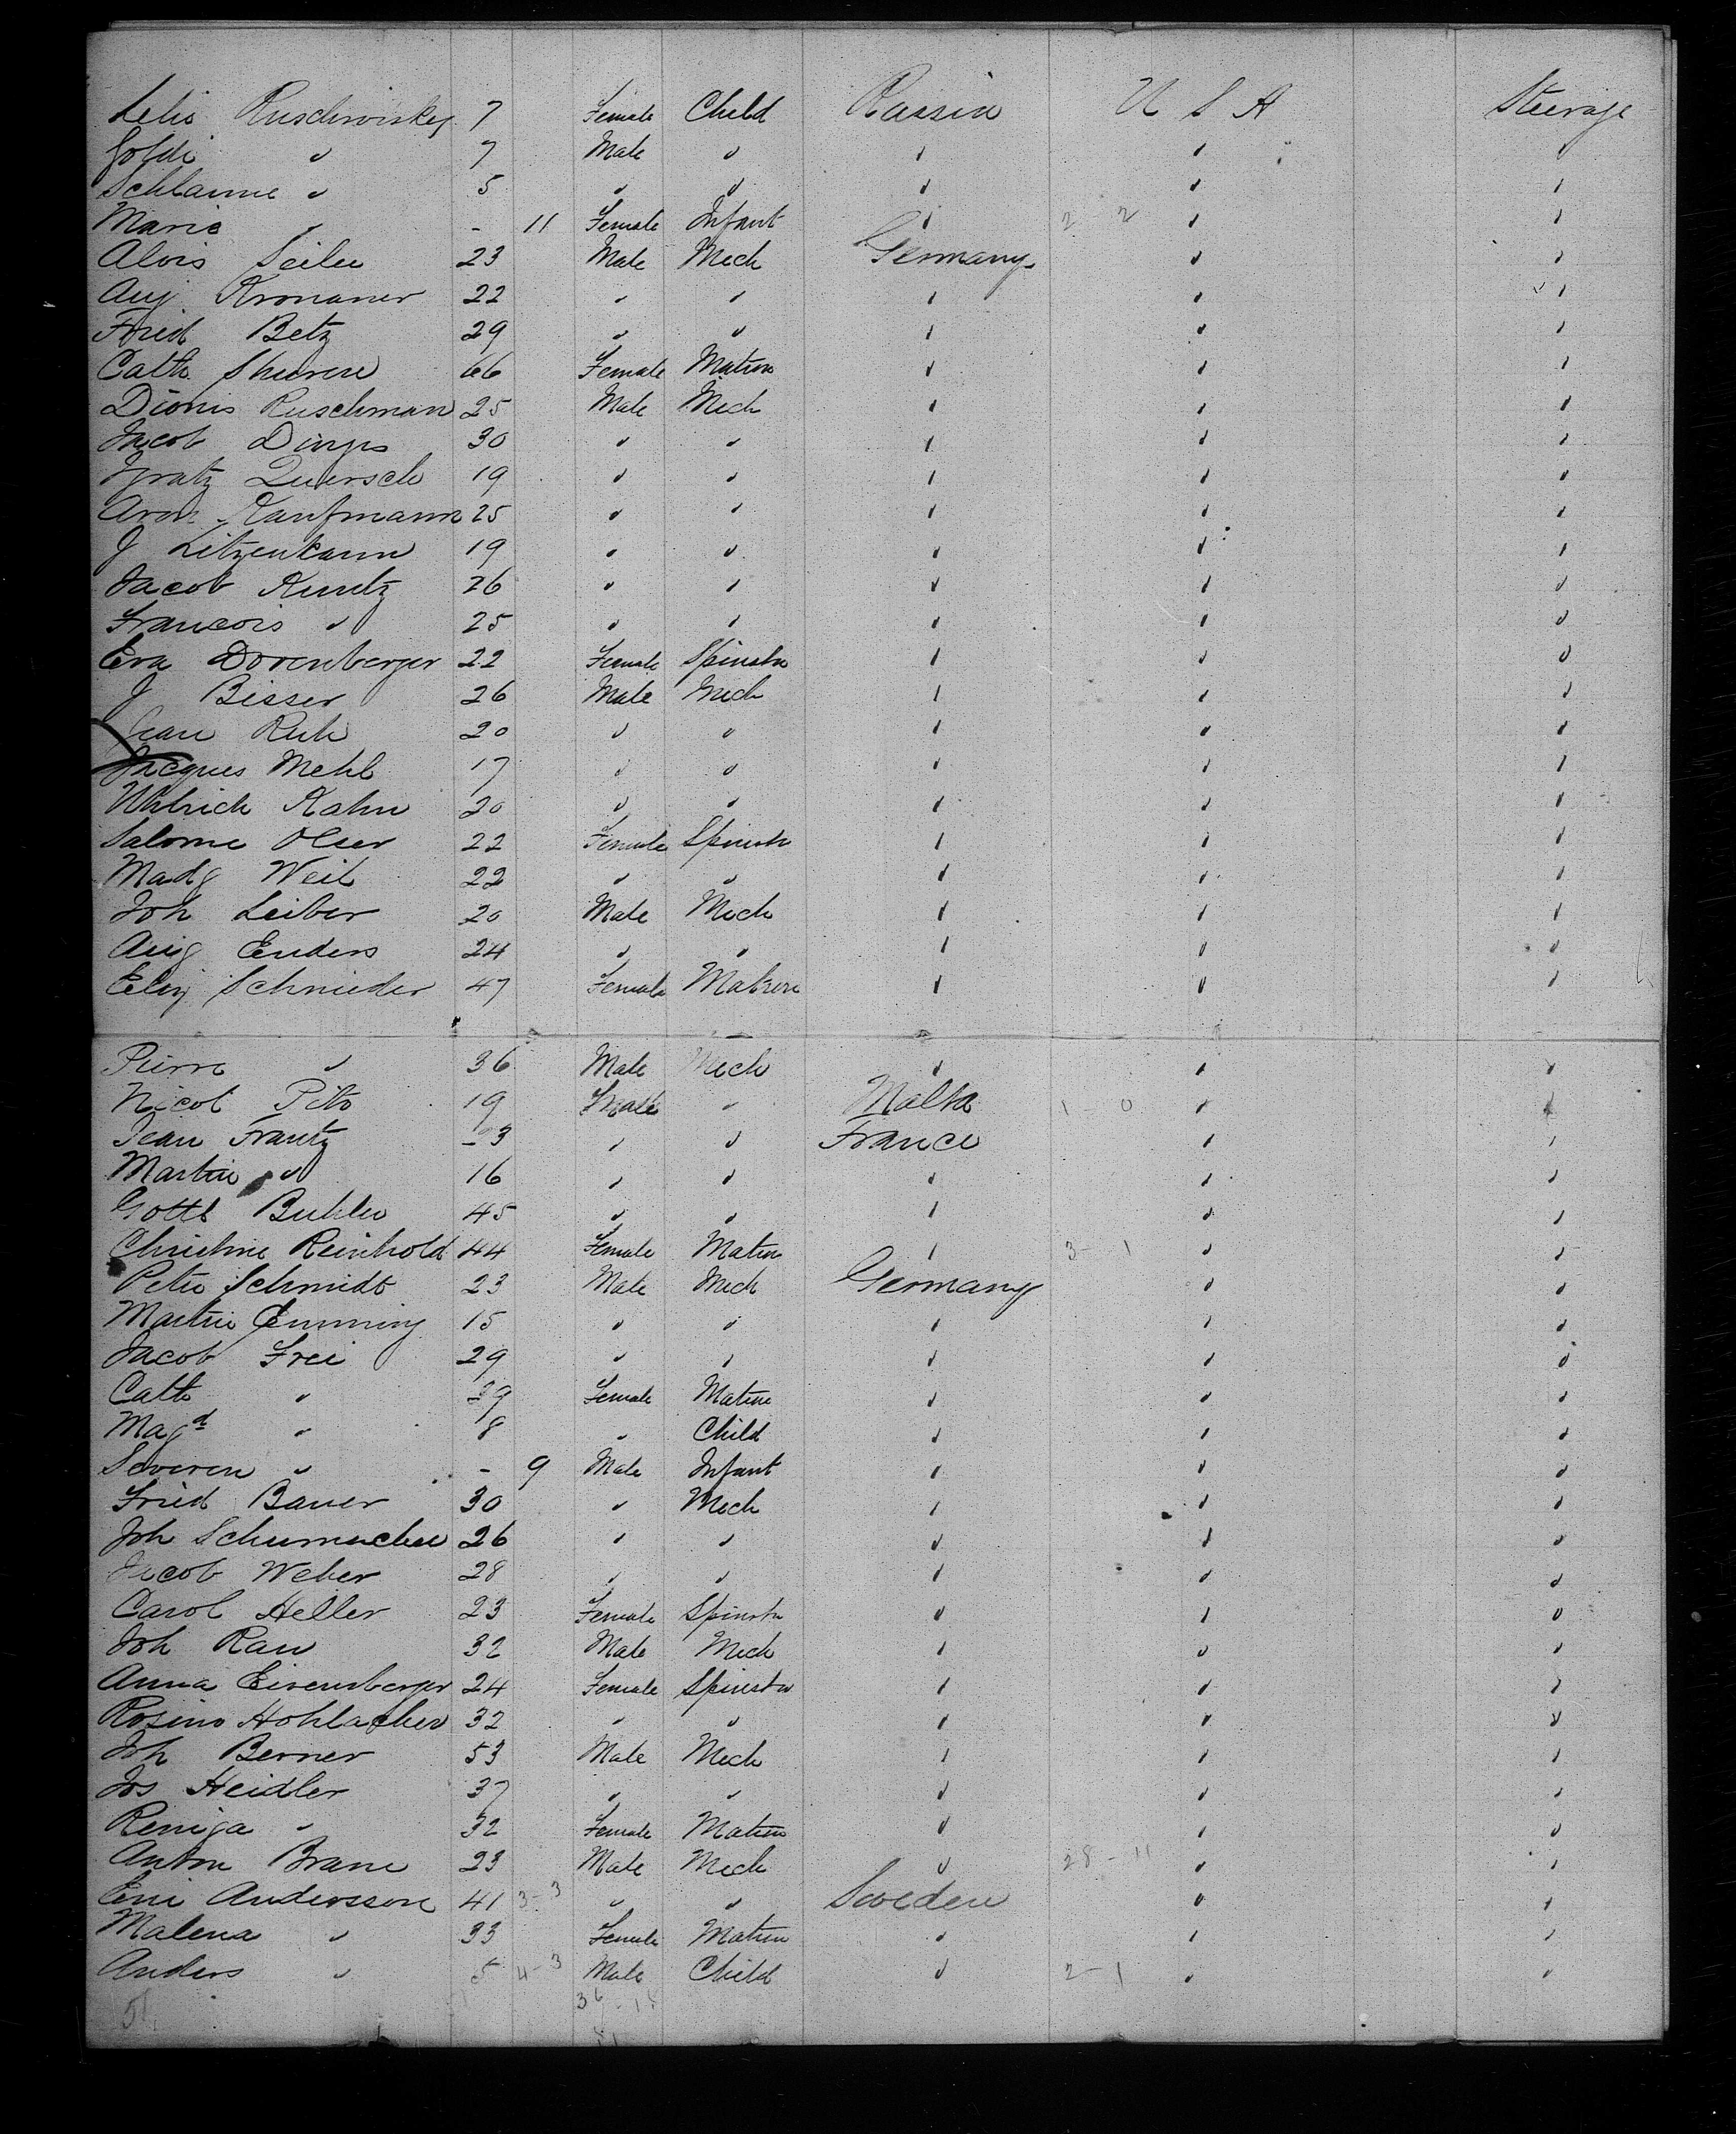 Lelis Ruschwisky 7 Female Child Russia U S A Steerage
Goldi " 7 Male " " " "
Schlaume " 5 " " " " "
Marie " - 11 Female Infant " 2-2 " "
Alois Seiler 23 Male Mech Germany " "
Aug Kronauer 22 " " " " "
Fried Betz 29 " " " " "
Cath 66 Female Matron " " "
Dionis Ruschman 25 Male Mech " " "
Jacob Dinges 30 " " " " "
Ignatz Quersch 19 " " " " "
Aron Kaufmann 25 " " " " "
J Litzenkann 19 " " " " "
Jacob Kuntz 26 " " " " "
Francois " 25 " " " " "
Eva Dorenberger 22 Female Spinster " " "
J Bisser 26 Male Mech " " "
Jean Ruh 20 " " " " "
Jacques Mehl 17 " " " " "
Uhlrich Kahn 20 " " " " "
Salome Olser 22 Female Spinster " " "
Madg Weil 22 " " " " "
Joh Leiber 20 Male Mech " " "
Aug Enders 24 " " " " "
Schnieder 47 Female Matron " " "
Pierre " 36 Male Mech " " "
Nicol Pito 19 Male " Malta 1 0 " "
Jean Frantz 23 " " France " "
Martin " 16 " " " " "
Gottl Buhler 45 " " " " "
Christine Reinhold 44 Female Matron " 3-1 " "
Peter Schmidt 23 Male Mech Germany " "
Martin Emming 15 " " " " "
Jacob Frei 29 " " " " "
Cath " 29 Female Matron " " "
Magd " 8 " Child " " "
Severen " - 9 Male Infant " " "
Fried Bauer 30 " Mech " " "
Joh Schumacher 26 " " " " "
Jacob Weber 28 " " " " "
Carol Heller 23 Female Spinster " " "
Joh Rau 32 Male Mech " " "
Anna Eisenberger 24 Female Spinster " " "
Rosino Hohlacher 32 " " " " "
Joh Berner 53 Male Mech " " "
Jos Heidler 37 " " " " "
Reniga " 32 Female Matron " " "
Anton Brane 23 Male Mech " 28-11 " "
Andersson 41 3-3 " " Sweden " "
Malena " 33 Female Matron " " "
Anders " 5 4-3 Male Child " 2-1 " "
51 36-15